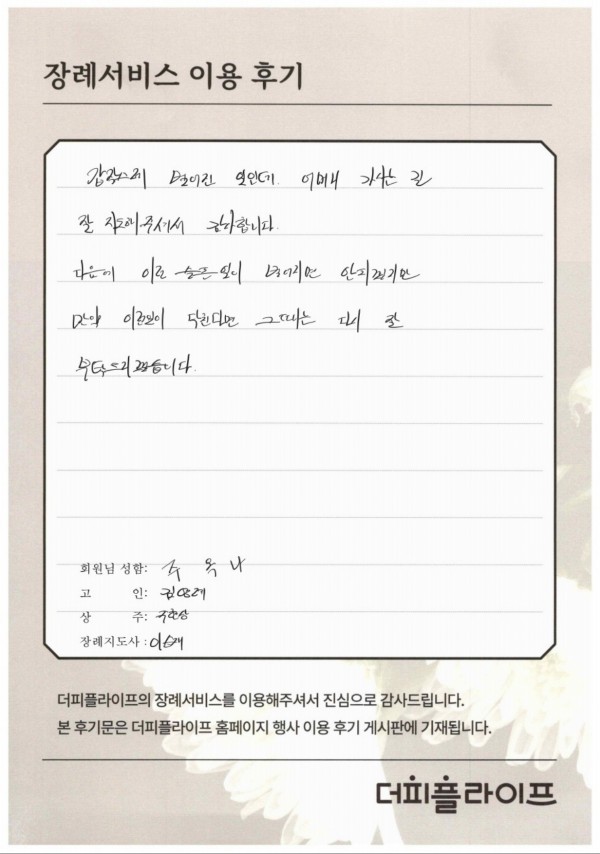 장례서비스 이용 후기
갑작스레 벌어진 일인데. 어머니 가시는 길
잘 지도해주셔서 감사합니다.
다음에 이런 슬픈일이 벌어지면 안되겠지만
만약 이런일이 닥친다면 그때는 다시 잘
부탁드리겠습니다.
회원님 성함: 주옥나
고 인: 김영례
상 주:
장례지도사 : 이승재
더피플라이프의 장례서비스를 이용해주셔서 진심으로 감사드립니다.
본 후기문은 더피플라이프 홈페이지 행사 이용 후기 게시판에 기재됩니다.
더피플라이프